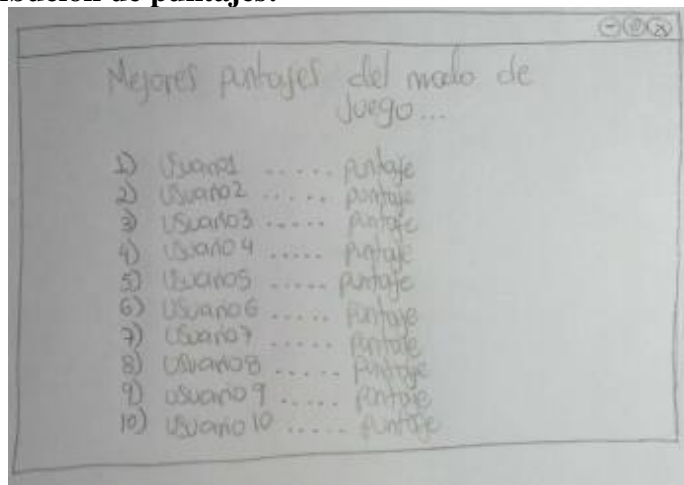 bución de puntajes.
Mejores puntajes del modo de
Juego...
1) Usuario1 ..... puntaje
2) Usuario2 ..... puntaje
3) Usuario3 ..... puntaje
4) Usuario4 ..... puntaje
5) Usuario5 ..... puntaje
6) Usuario6 ..... puntaje
7) Usuario7 ..... puntaje
8) Usuario8 ..... puntaje
9) usuario9 ..... puntaje
10) Usuario10 ..... puntaje